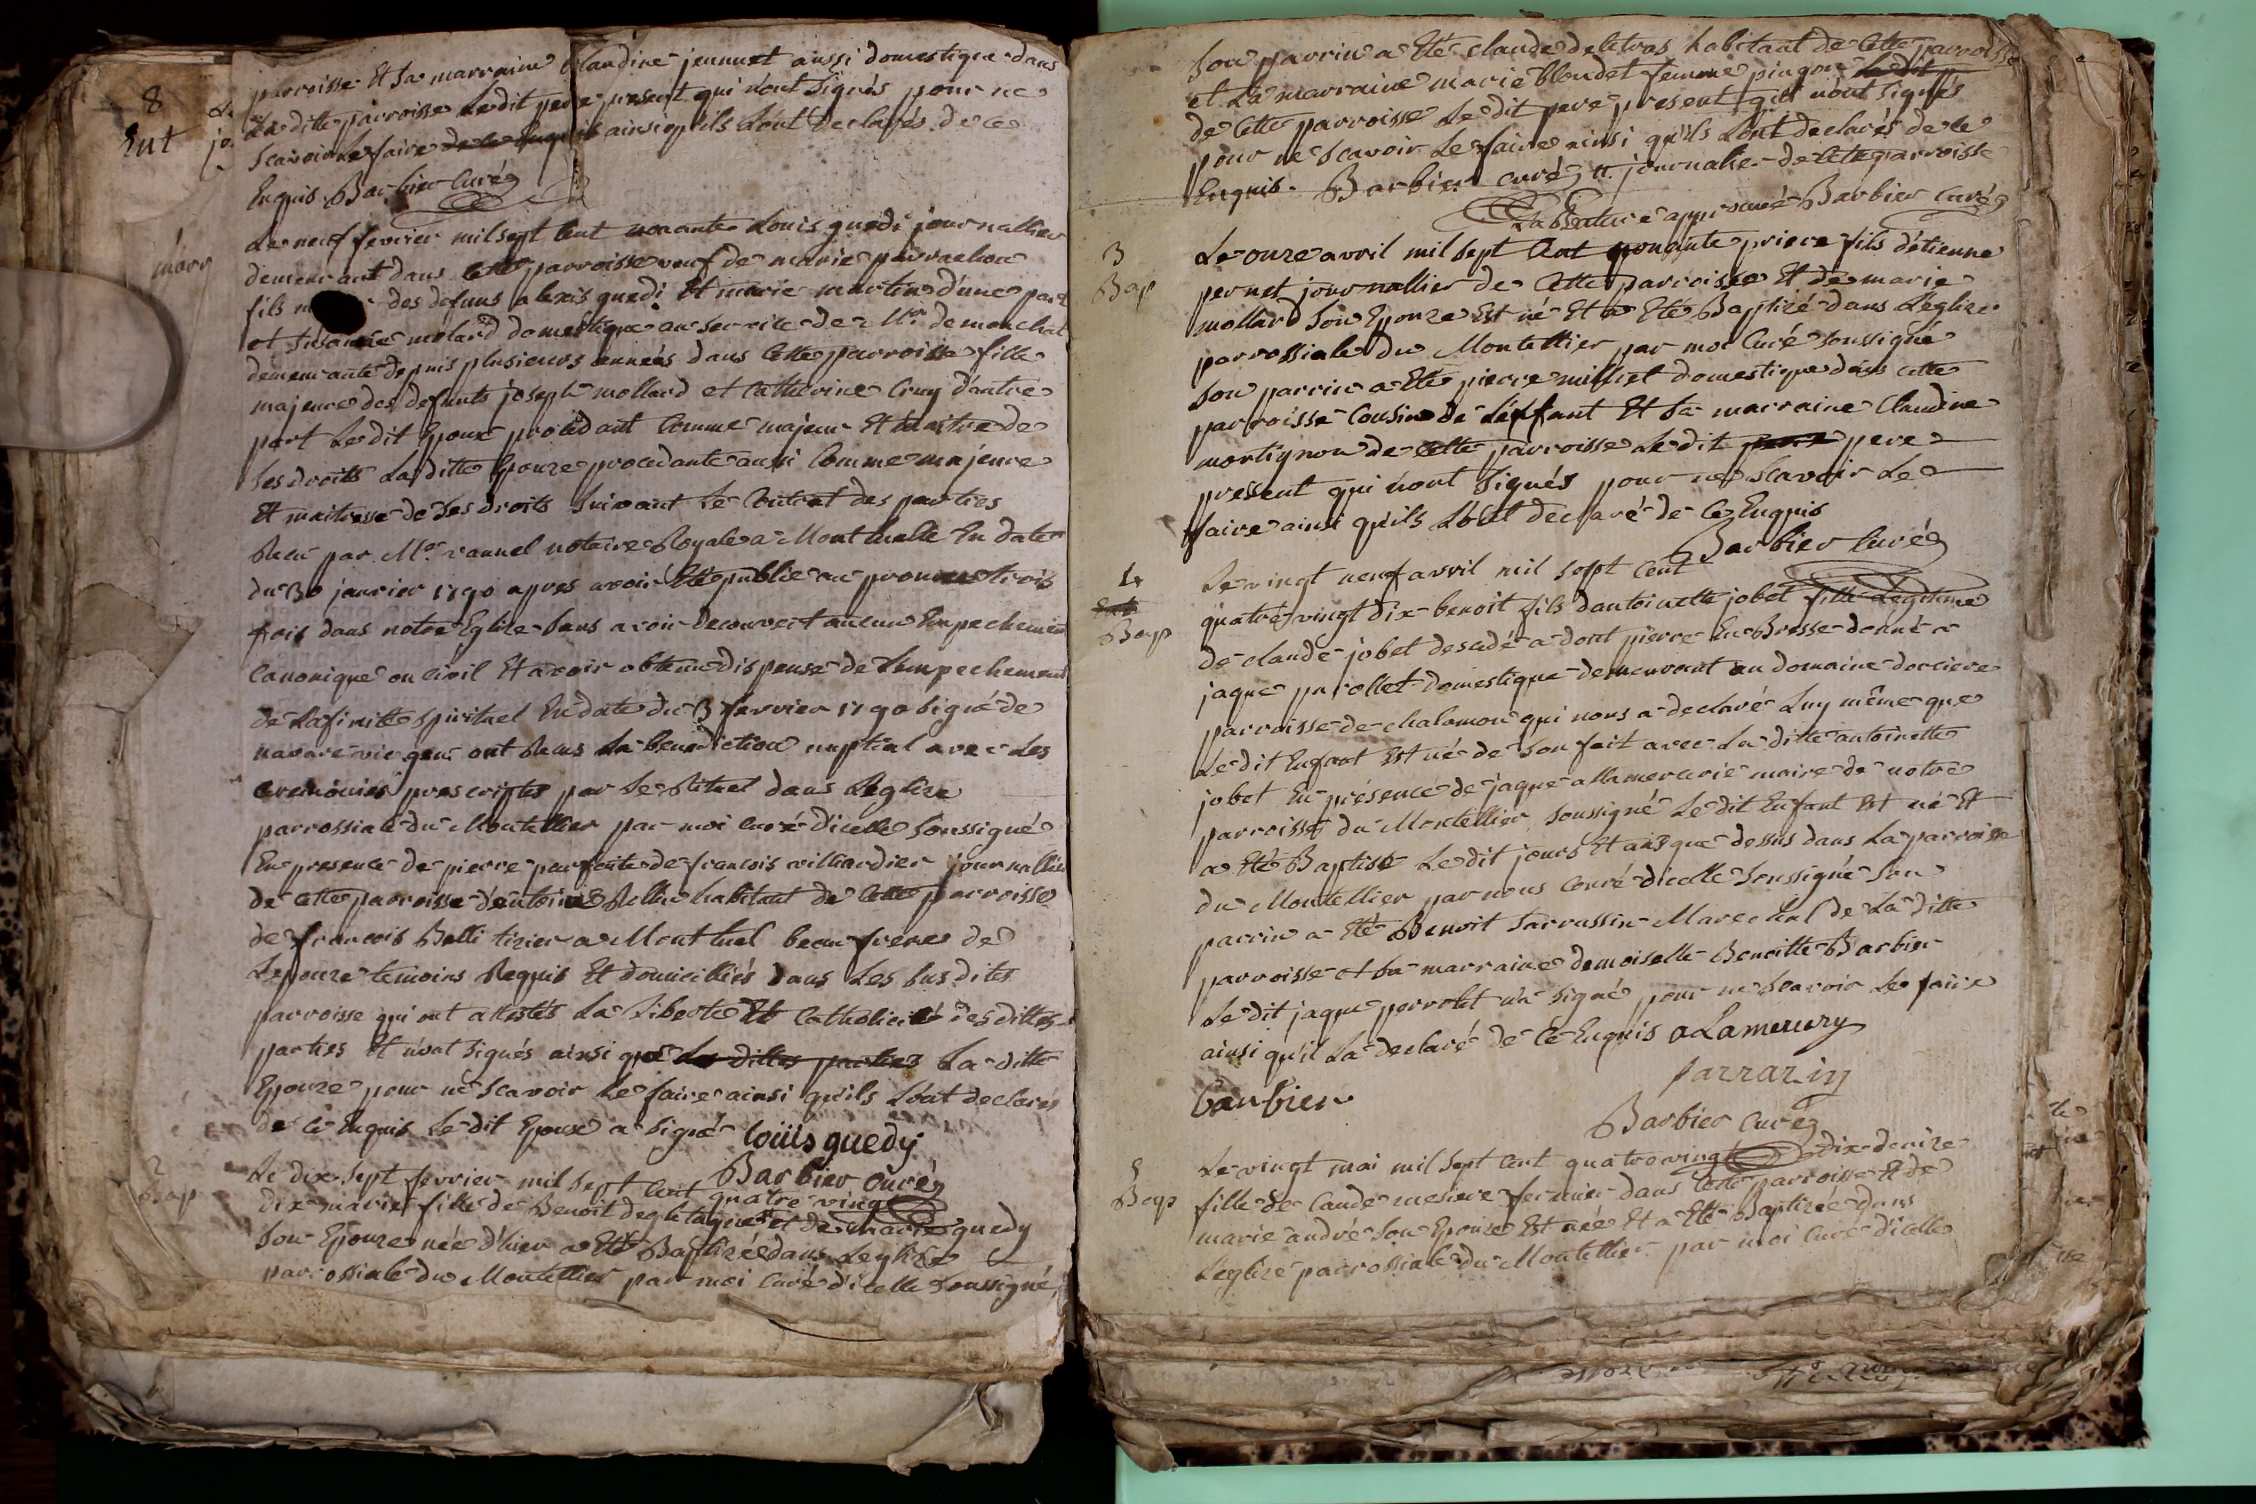 8
Ent
parroisse Et sa marraine Claudine jeunnet aussi domestique dans
la ditte parroisse Ledit pere present qui n'ont signés pour ne
scavoir Le faire de ce enquis ainsi qu'ils L'ont declarés de ce
Enquis. Barbier Curé
marr
Le neuf fevrier mil sept cent nonante Louis guedi journallier
demeurant dans cette parroisse veuf de marie perrachon
fils des defuns alexis guedi Et marie martin d'une part
et susanne molard domestique au service de Mr. demonchal
demeurante depuis plusieurs années dans cette parroisse fille
majeure des defunts joseph mollard et catherine Cruy d'autre
part Ledit Epoux procédant comme majeur Et maitre de
ses droits La ditte Epouze procedante aussi comme majeure
Et maitresse de ses droits suivant Le Contrat des parties
Recu par Me. ravuel notaire Royale a Montluelle En date
du 30 janvier 1790 apres avoir Eté publié au prone trois
fois dans notre Eglise sans avoir decouvert aucun Empechement
Canonique ou civil Et avoir obtenu dispense de L'empechement
de Lafinitte spirituel En date du 3 fevrier 1790 signé de
navare vic gen: ont Recus La benediction nuptial avec Les
ceremonies prescriptes par Le Rituel dans Leglize
parrossiale du Montellier par moi curé Dicelle soussigné
En presence de pierre de francois villiardier journallier
de cette parroisse d'entoine Rollin habitant de cette parroisse
de francois Belli tixier a Montluel beau frere de
Lepouze temoins Requis Et domicilliés dans Les sus dites
parroisse qui ont attestés La Liberté Et Catholicité des dittes
parties Et n'ont signés ainsi que Les dittes parties La ditte
Epouze pour ne scavoir Le faire ainsi qu'ils L'ont declarés
de ce Enquis Le dit Epoux a signé louis guedy
Barbier Curé
2
Bap
Le dix sept fevrier mil sept Cent quatre vingt
dix marie fille de Benoit degletagne et de marie guedy
son Epouze née d'hier a Eté Baptizée dans Leglize
parrossiale du Montellier par moi curé d'icelle soussigné,
son parrin a Eté claude deletras habitant de cette parroisse
et La marraine marie blondet femme pingon Ledit p
de cette parroisse Le dit pere present qui n'ont signés
pour ne scavoir Le faire ainsi qu'ils L'ont declarés de ce
Enquis. Barbier curé journalier de cette parroisse
La Rature approuvé Barbier Curé
3
Bap
Le onze avril mil sept Cent nonante pierre fils d'étienne
pernet journallier de Cette parroisse Et de marie
mollard son Epouze Est né Et a Eté Baptizé dans Léglize
parrossiale du Montellier par moi Curé soussigné
son parrin a Eté pierre milliet domestique dans cette
parroisse cousin de L'enffant Et sa marraine Claudine
mortignon de cette parroisse Le dit pere
pressent qui n'ont signés pour ne scavoir Le
faire ainsi qu'ils L'ont declaré de Ce Enquis
Barbier curé
4
Ent
Bap
Le vingt neuf avril mil sept cent
quatre vingt dix benoit fils d'antoinette jobet fille Legitime
de claude jobet decedé a dont pierre En Bresse donné a
jaque perollet domestique demeurant au domaine dorciere
parroisse de chalamon qui nous a declaré Luy même que
Le dit Enfant Est né de son fait avec La ditte antoinette
jobet En présence de jaque allamercerie maire de notre
parroisse du Montellier soussigné Le dit Enfant Est né Et
a Eté Baptisé Le dit jours Et ans que dessus dans La parroisse
du Montellier par nous Curé d'icelle soussigné son
parrin a Eté Benoit sarrassin Marechal de La ditte
parroisse et sa marraine demoiselle Benoitte Barbier
Le dit jaque perrolet n'a signé pour ne scavoir Le faire
ainsi qu'il La declaré de Ce Enquis aLamercery
sarrazin
barbier
Barbier curé
5
Bap
Le vingt mai mil sept cent quatre vingt dix denize
fille de Claude mesiere fermier dans Cette parroisse Et de
marie andré son Epouze Est née Et a Eté Baptizée dans
Leglize parrossiale du Montellier par moi Curé d'icelle